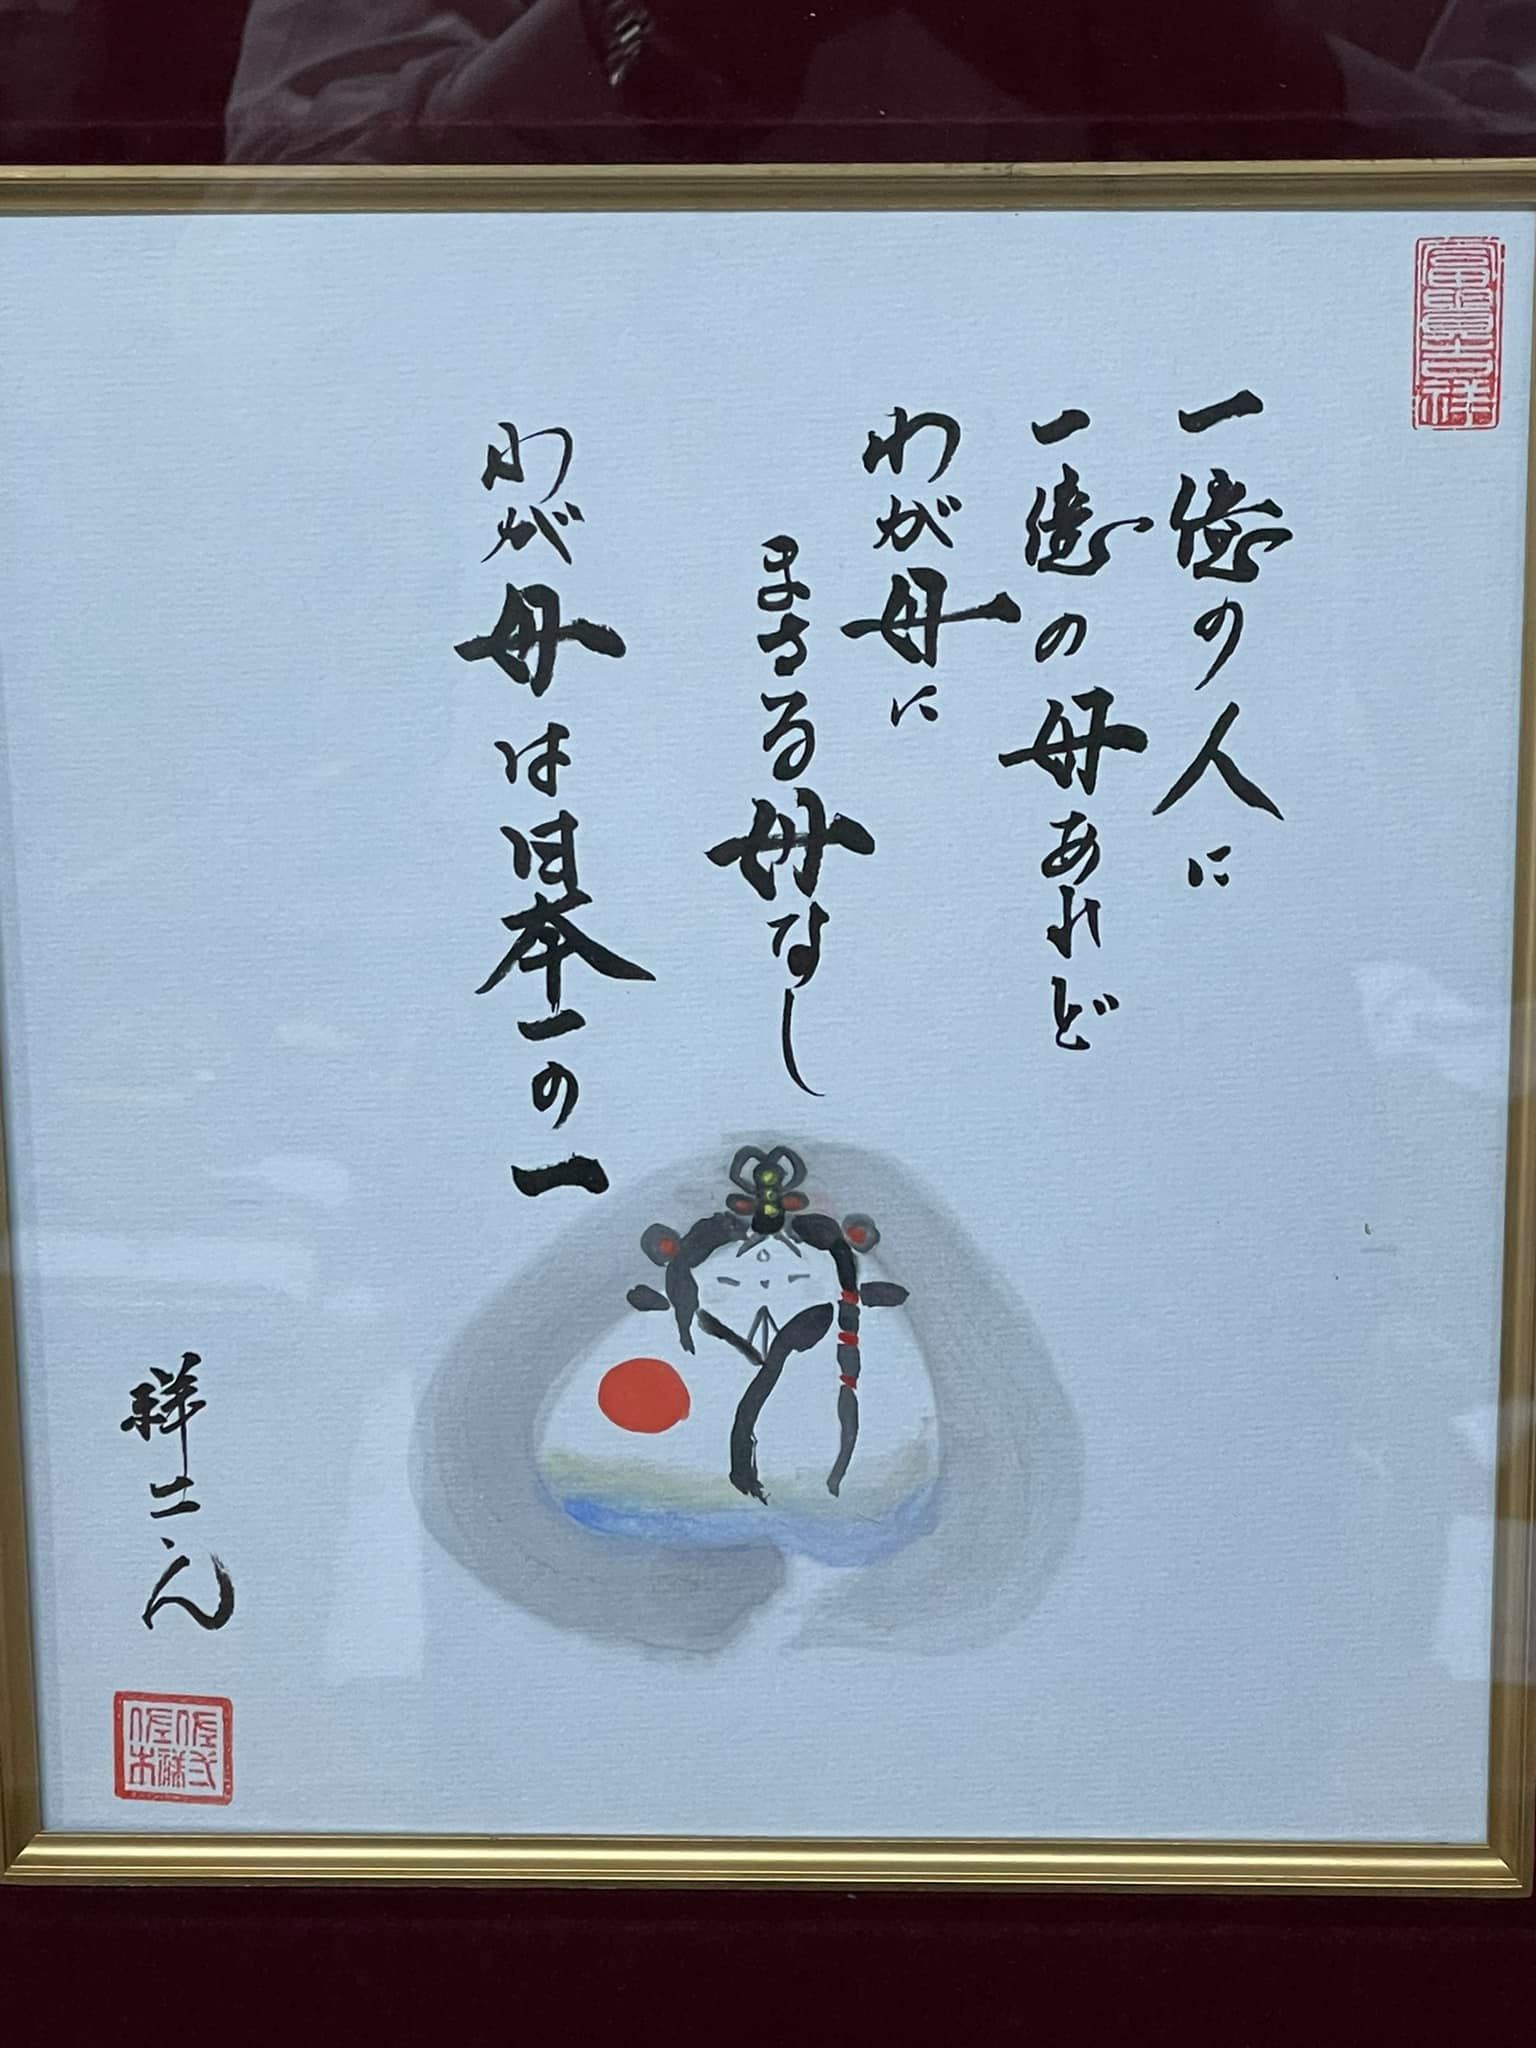 富貴吉祥
一億の人に
一億の母あれど
わが母に
まさる母なし
わが母は日本一の一
祥二ゑん